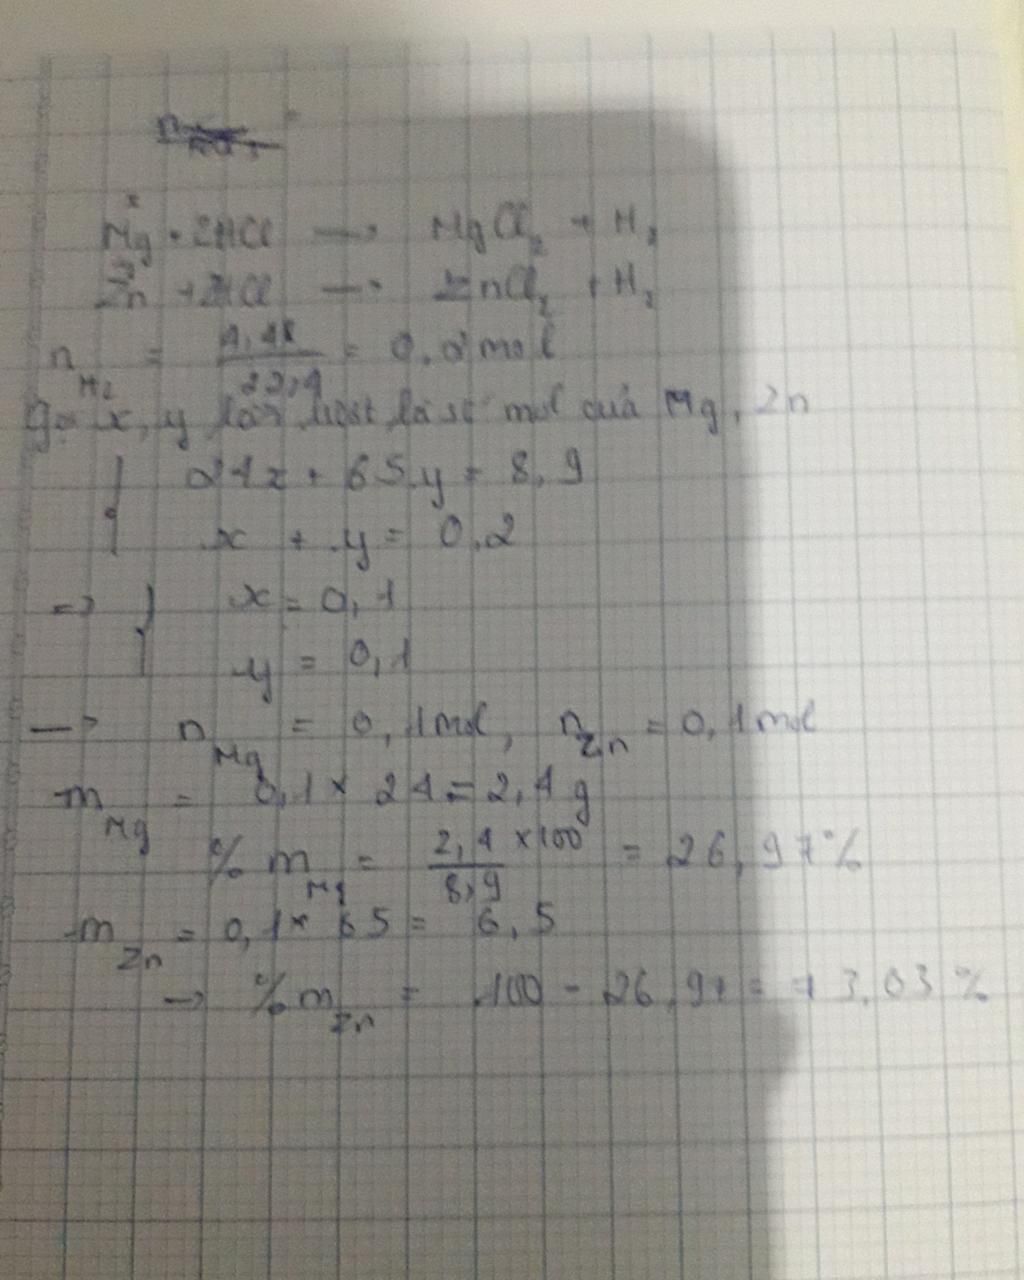 x
Mg + 2HCl → MgCl₂ + H₂
Zn + 2HCl → ZnCl₂ + H₂
n H₂ = 4,48 / 22,4 = 0,2 mol
Gọi x, y lần lượt là số mol của Mg, Zn
{ 24x + 65y = 8,9
x + y = 0,2
=> { x = 0,1
y = 0,1
→ n Mg = 0,1 mol, n Zn = 0,1 mol
m Mg = 0,1 × 24 = 2,4 g
% m Mg = 2,4 × 100 / 8,9 = 26,97%
m Zn = 0,1 × 65 = 6,5
→ % m Zn = 100 - 26,97 = 73,03%